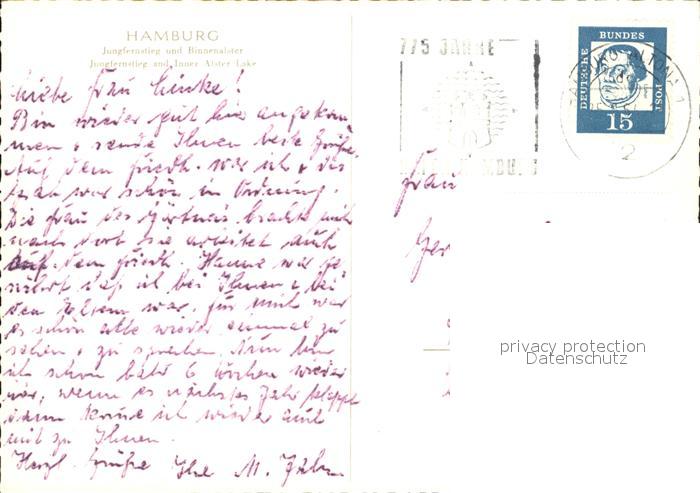 HAMBURG
Jungfernstieg und Binnenalster
Jungfernstieg and Inner Alster Lake
Liebe Frau Linke!
Bin wieder gut hier angekom
men & sende Ihnen beste Grüße.
Auf dem Friedh. war ich & das
war schön in Ordnung.
Die Frau des Gärtners brachte mich
nach dort sie arbeitet auch
auf dem Friedh. Hanne war ge
rührt daß ich bei Ihnen & bei
den Eltern war, für mich war
es schön alle wieder einmal zu
sehen & zu sprechen. Nun bin
ich schon bald 6 Wochen wieder
hier, wenn es nächstes Jahr klappt
dann komme ich wieder auch
mit zu Ihnen.
Herzl. Grüße Ihre M.
775 JAHRE
DEUTSCHE BUNDES POST
15
2
Frau
Ger
privacy protection
Datenschutz